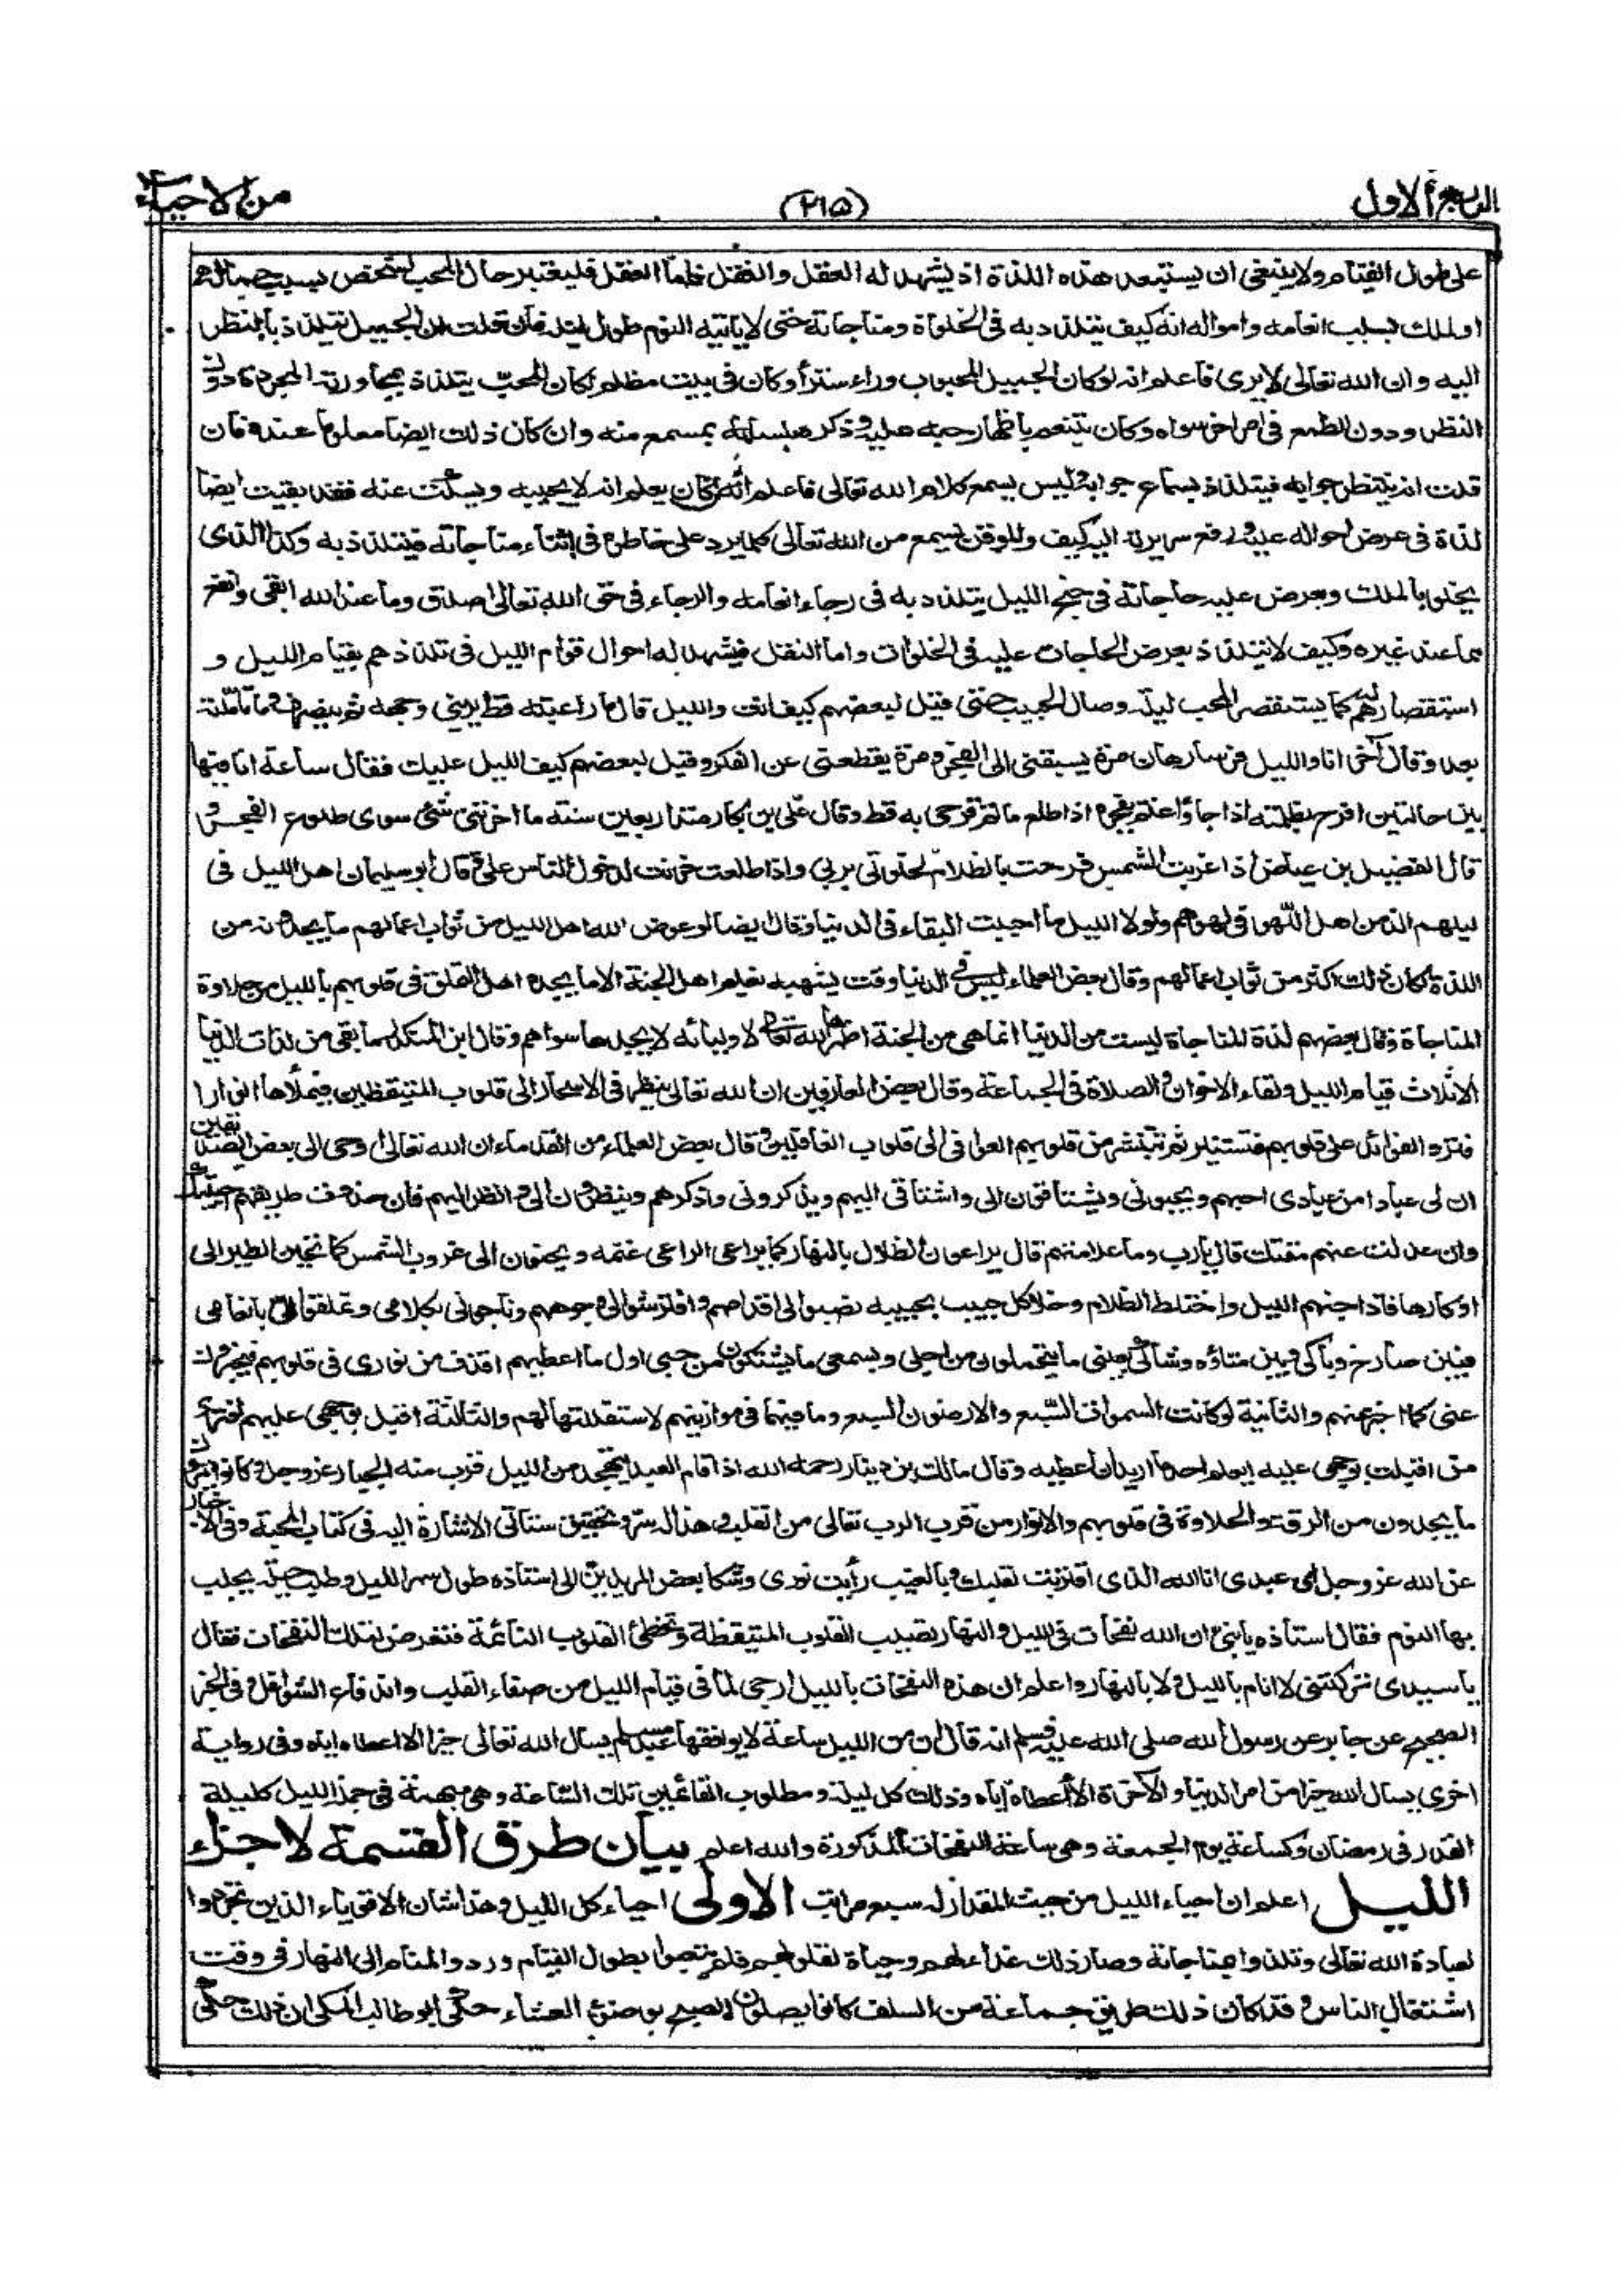 الربع الاول
(٢١٥)
من الاحياء
على طول القيام ولا ينبغى ان يستبعد هذه اللذة اذ يشهد له العقل والنقل فاما العقل فليعتبر حال المحب لشخص بسبب جماله
او لملك بسبب انعامه وامواله انه كيف يتلذذ به فى الخلوة ومناجاته حتى لا يأتيه النوم طول ليله فان قلت ان الجميل يتلذذ بالنظر
اليه وان الله تعالى لا يرى فاعلم انه لو كان الجميل المحبوب وراء ستر أو كان فى بيت مظلم لكان المحب يتلذذ بمجاورته المجردة دون
النظر ودون الطمع فى امر اخر سواه وكان يتنعم باظهار حبه عليه وذكره بلسانه بمسمع منه وان كان ذلك ايضا معلوما عنده فان
قلت انه ينتظر جوابه فيتلذذ بسماع جوابه وليس يسمع كلام الله تعالى فاعلم انه ان كان يعلم انه لا يجيبه ويسكت عنه فقد بقيت ايضا
لذة فى عرض احواله عليه ورفع سريرته اليه كيف والموقن يسمع من الله تعالى كلما يرد على خاطره فى اثناء مناجاته فيتلذذ به وكذا الذى
يخلو بالملك ويعرض عليه حاجاته فى جنح الليل يتلذذ به فى رجاء انعامه والرجاء فى حق الله تعالى اصدق وما عند الله ابقى وانفع
مما عند غيره وكيف لا يتلذذ بعرض الحاجات عليه فى الخلوات واما النقل فيشهد له احوال قوام الليل فى تلذذهم بقيام الليل و
استقصارهم له كما يستقصر المحب ليلة وصال الحبيب حتى قيل لبعضهم كيف انت والليل قال ما راعيته قط يرينى وجهه ثم ينصرف وما تأملته
بعد وقال آخر انا والليل فرسا رهان مرة يسبقنى الى الفجر ومرة يقطعنى عن الفكر وقيل لبعضهم كيف الليل عليك فقال ساعة انا فيها
بين حالتين افرح بظلمته اذا جاء واغتم بفجره اذا طلع ما تم فرحى به قط وقال على بن بكار منذ اربعين سنة ما احزننى شئ سوى طلوع الفجر و
قال الفضيل بن عياض اذا غربت الشمس فرحت بالظلام لخلوتى بربى واذا طلعت حزنت لدخول الناس على وقال أبو سليمان اهل الليل فى
ليلهم الذ من اهل اللهو فى لهوهم ولولا الليل ما احببت البقاء فى الدنيا وقال ايضا لو عوض الله اهل الليل من ثواب اعمالهم ما يجدونه من
اللذة لكان ذلك اكثر من ثواب اعمالهم وقال بعض العلماء ليس فى الدنيا وقت يشبه نعيم اهل الجنة الا ما يجده اهل التملق فى قلوبهم بالليل من حلاوة
المناجاة وقال بعضهم لذة المناجاة ليست من الدنيا انما هى من الجنة اظهرها الله تعالى لاوليائه لا يجدها سواهم وقال ابن المنكدر ما بقى من لذات الدنيا
الا ثلاث قيام الليل ولقاء الاخوان والصلاة فى الجماعة وقال بعض العارفين ان الله تعالى ينظر فى الاسحار الى قلوب المتيقظين فيملأها انوارا
فترد الفوائد على قلوبهم فتستنير ثم تنتشر من قلوبهم العوافى الى قلوب الغافلين وقال بعض العلماء من القدماء ان الله تعالى اوحى الى بعض الصديقين
ان لى عبادا من عبادى احبهم ويحبونى ويشتاقون الى واشتاق اليهم ويذكرونى واذكرهم وينظرون الى وانظر اليهم فان حذوت طريقهم احببتك
وان عدلت عنهم مقتك قال يارب وما علامتهم قال يراعون الظلال بالنهار كما يراعى الراعى غنمه ويحنون الى غروب الشمس كما تحن الطير الى
اوكارها فاذا جنهم الليل واختلط الظلام وخلا كل حبيب بحبيبه نصبوا الى اقدامهم وافترشوا لى وجوههم وناجونى بكلامى وتملقوا الى بانعامى
فبين صارخ وباكى وبين متأوه وشاكى بعينى ما يتحملون من اجلى وبسمعى ما يشتكون من حبى اول ما اعطيهم اقذف من نورى فى قلوبهم فيخبرون
عنى كما اخبر عنهم والثانية لو كانت السموات السبع والارضون السبع وما فيهما فى موازينهم لاستقللتها لهم والثالثة اقبل بوجهى عليهم افترى
من اقبلت بوجهى عليه ايعلم احد ما اريد ان اعطيه وقال مالك بن دينار رحمه الله اذا قام العبد يتهجد من الليل قرب منه الجبار عز وجل وكانوا يرون
ما يجدون من الرقة والحلاوة فى قلوبهم والانوار من قرب الرب تعالى من القلب وهذا له سر وتحقيق ستأتى الاشارة اليه فى كتاب المحبة وفى الاخبار
عن الله عز وجل اى عبدى انا الله الذى اقتربت لقلبك وبالغيب رأيت نورى وشكا بعض المريدين الى استاذه طول سهر الليل وطلب حيلة يجلب
بها النوم فقال استاذه يا بنى ان لله نفحات فى الليل والنهار تصيب القلوب المتيقظة وتخطئ القلوب النائمة فتعرض لتلك النفحات فقال
يا سيدى تركتنى لا انام بالليل ولا بالنهار واعلم ان هذه النفحات بالليل ارجى لما فى قيام الليل من صفاء القلب واندفاع الشواغل وفى الخبر
الصحيح عن جابر عن رسول الله صلى الله عليه وسلم انه قال ان من الليل ساعة لا يوافقها عبد مسلم يسأل الله تعالى خيرا الا اعطاه اياه وفى رواية
اخرى يسأل الله خيرا من امر الدنيا والآخرة الا أعطاه اياه وذلك كل ليلة ومطلوب القائمين تلك الساعة وهى مبهمة فى جملة الليل كليلة
القدر فى رمضان وكساعة يوم الجمعة وهى ساعة النفحات المذكورة والله اعلم بيان طرق القسمة لاجزاء
الليل اعلم ان احياء الليل من حيث المقدار له سبع مراتب الاولى احياء كل الليل وهذا شأن الاقوياء الذين تجردوا
لعبادة الله تعالى وتلذذوا بمناجاته وصار ذلك غذاء لهم وحياة لقلوبهم فلم يتعبوا بطول القيام وردوا المنام الى النهار فى وقت
اشتغال الناس وقد كان ذلك طريق جماعة من السلف كانوا يصلون الصبح بوضوء العشاء حكى ابو طالب المكى ان ذلك حكى